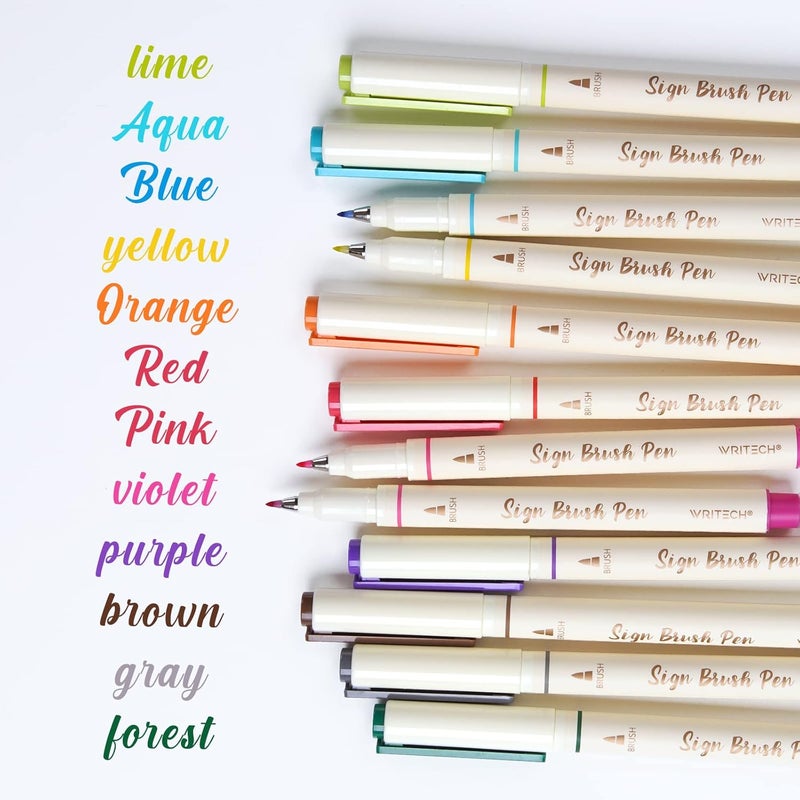 lime
Aqua
Blue
yellow
Orange
Red
Pink
violet
purple
brown
gray
forest
BRUSH Sign Brush Pen
BRUSH Sign Brush Pen
BRUSH Sign Brush Pen WRITE
BRUSH Sign Brush Pen WRITEC
BRUSH Sign Brush Pen
BRUSH Sign Brush Pen
BRUSH Sign Brush Pen WRITECH®
BRUSH Sign Brush Pen WRITECH®
BRUSH Sign Brush Pen
BRUSH Sign Brush Pen
BRUSH Sign Brush Pen
BRUSH Sign Brush Pen